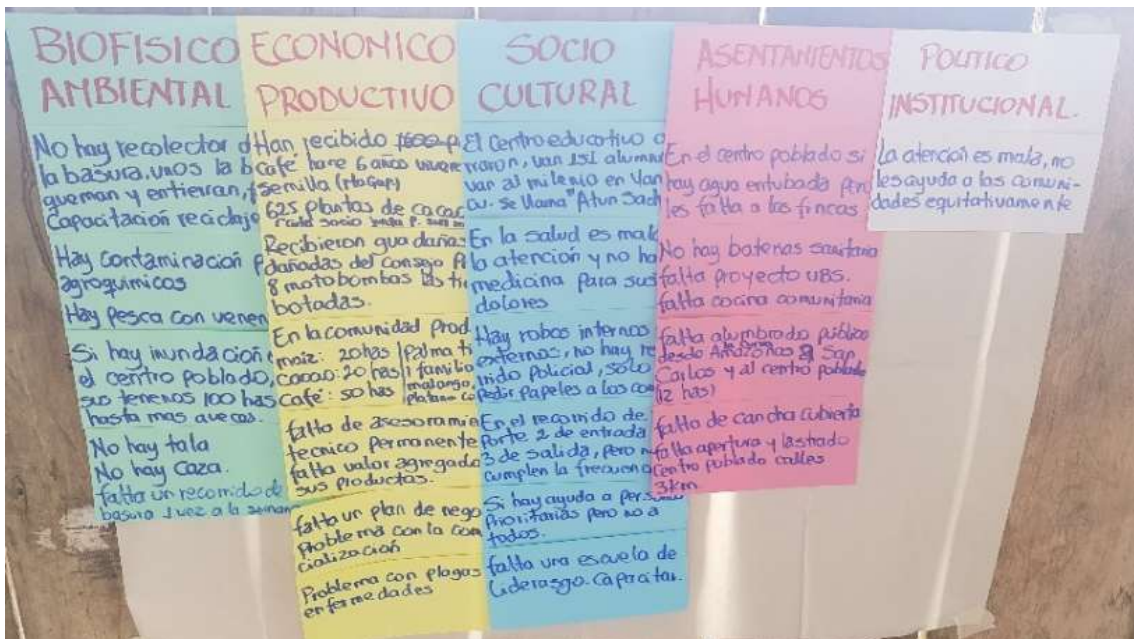 BIOFISICO
AMBIENTAL
No hay recolector d
la basura, unos la b
queman y entierran, f
Capacitación reciclaje
Hay contaminación p
agroquimicos
Hay Pesca con venen
Si hay inundación
el centro poblado,
sus terrenos 100 has
hasta mas aveces.
No hay tala
No hay Caza.
falta un recorrido de
basura 1 vez a la seman
ECONOMICO
PRODUCTIVO
Han recibido
café hace 6 años
semilla (Magap)
625 plantas de cacao
socio
Recibieron guadañas
dañadas del Consejo P
8 motobombas las
botadas.
En la comunidad Prod
maiz: 20 has palma
cacao: 20 has 1 familia
Café: 50 has malanga,
platano
falta de asesoramie
tecnico permanente
falta valor agregado
sus productos.
falta un plan de nego
Problema con la com
cialización
Problema con plagas
enfermedades
SOCIO
CULTURAL
El Centro educativo
van 151 alumn
van al milenio en
Se llama "Atun Sach
En la salud es mala
la atención y no ha
medicina para sus
dolores
Hay robos internos
externos, no hay
Policial, solo
Pedir Papeles a los
En el recorrido de
porte 2 de entrada
3 de salida, pero n
cumplen la frecuenc
Si hay ayuda a person
Prioritarias pero no a
todos.
falta una escuela de
Liderasgo. Capacitar.
ASENTAMIENTOS
HUMANOS
En el centro poblado si
hay agua entubada pero
les falta a las fincas
No hay baterias sanitaria
falta proyecto UBS.
falta cocina comunitaria
falta alumbrado público
desde Amazonas a San
Carlos y al centro poblado
(12 has)
falta de cancha cubierta
falta apertura y lastrado
Centro poblado calles
3km.
POLITICO
INSTITUCIONAL.
La atención es mala, no
les ayuda a las comuni-
dades equitativamente